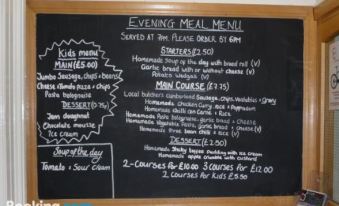 EVENING MEAL MENU
SERVED AT 7PM. PLEASE ORDER BY 6PM
STARTERS (£2.50)
Homemade Soup of the day with bread roll (v)
Garlic bread with or without cheese (v)
Potato wedges (v)
MAIN COURSE (£7.75)
Local butchers cumberland Sausage, chips, vegetables + gravy
Homemade chicken curry, rice + poppadom
Homemade chilli con carne + Rice
Homemade Pasta bolognaise, garlic bread + cheese
Homemade Vegetable Pasta, garlic bread + cheese (v)
Homemade three bean chilli + rice (v)
DESSERT (£2.50)
Homemade Sticky toffee Pudding with ice cream
Homemade apple crumble with custard
2-COURSES FOR £10.00 3 COURSES FOR £12.00
2 COURSES FOR Kids £5.50
Kids menu
MAIN (£5.00)
Jumbo Sausage, chips + beans
Cheese + Tomato pizza + chips
Pasta bolognaise
DESSERT (0.75)
Jam doughnut
Chocolate mousse
Ice cream
Soup of the day
Tomato + Sour cream
Booking.com